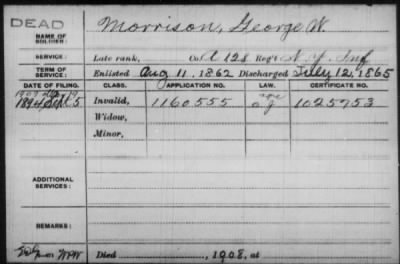 DEAD
NAME OF SOLDIER: Morrison, George W.
SERVICE: Late rank, Co. A 128 Reg't N.Y. Inf
TERM OF SERVICE: Enlisted Aug 11, 1862 Discharged July 12, 1865
DATE OF FILING. CLASS. APPLICATION NO. LAW. CERTIFICATE NO.
1894 Sept 5 Invalid, 1160555 1025753
Widow,
Minor,
ADDITIONAL SERVICES:
REMARKS:
Died 1908, at